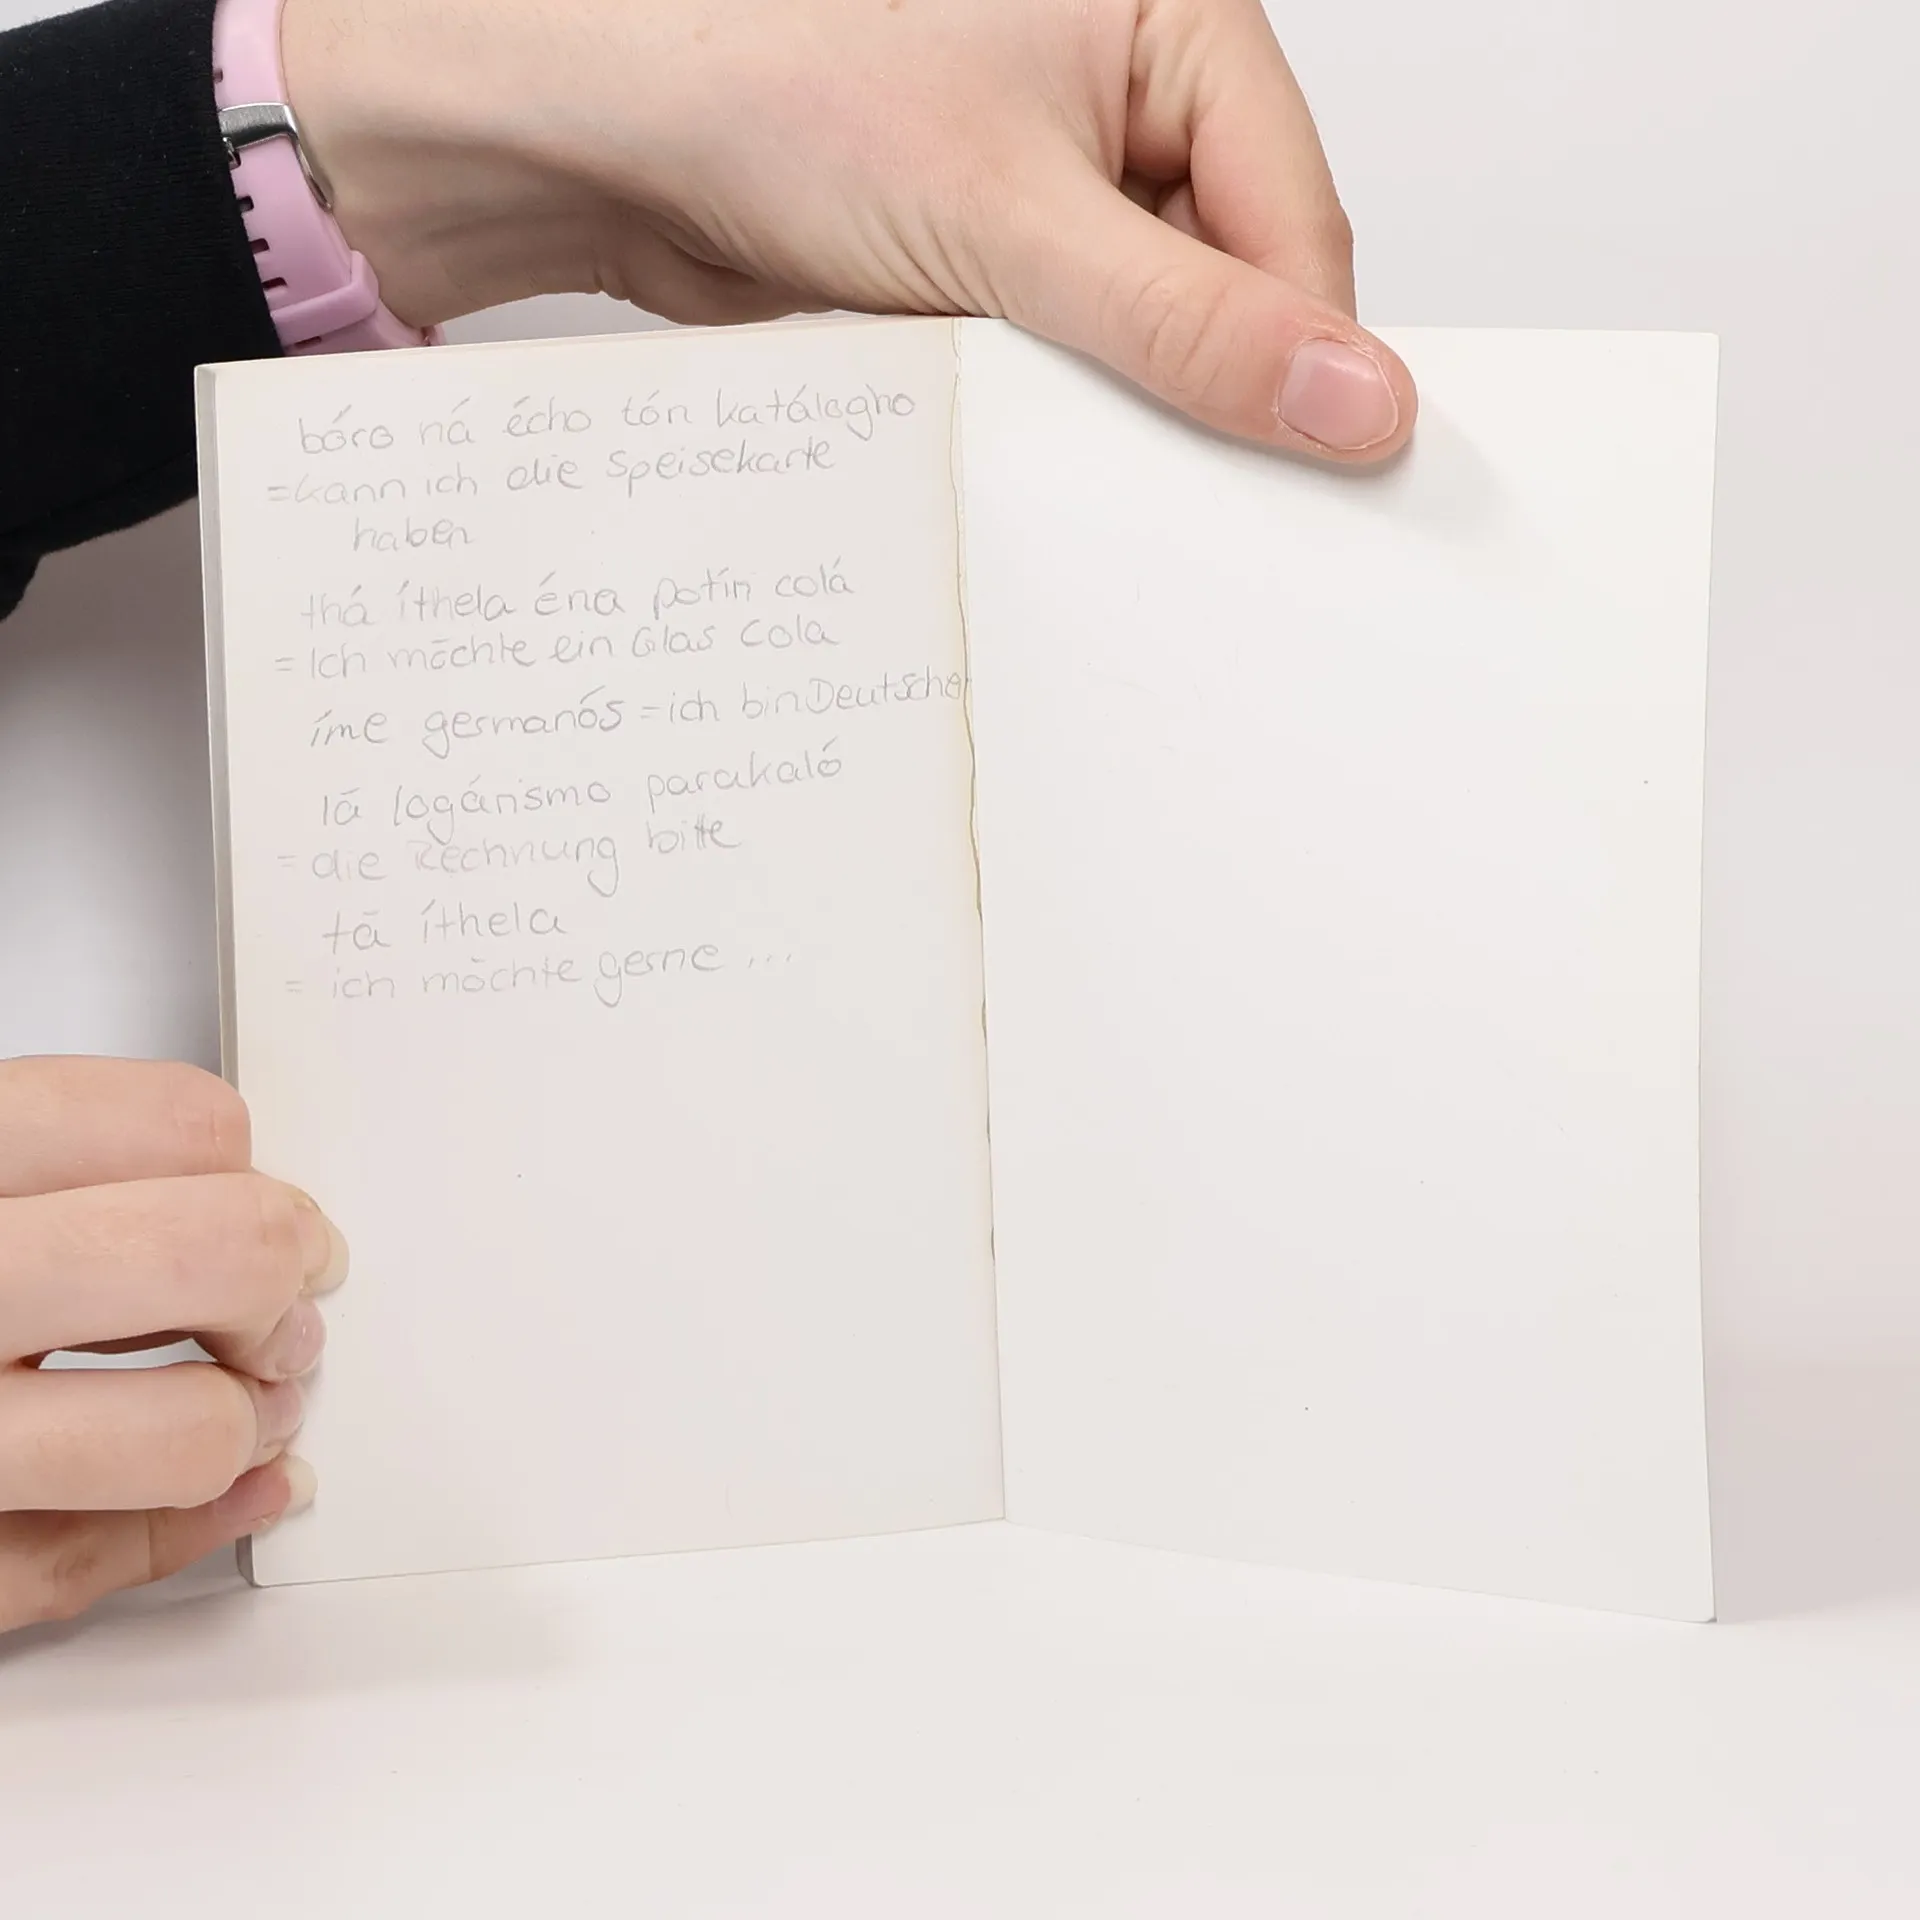 bóro ná écho tón katálogho
=kann ich die Speisekarte
haben
thá íthela éna potín colá
=Ich möchte ein Glas Cola
íme germanós =ich bin Deutscher
lā logárismo parakaló
= die Rechnung bitte
tā íthela
= ich möchte gerne ...